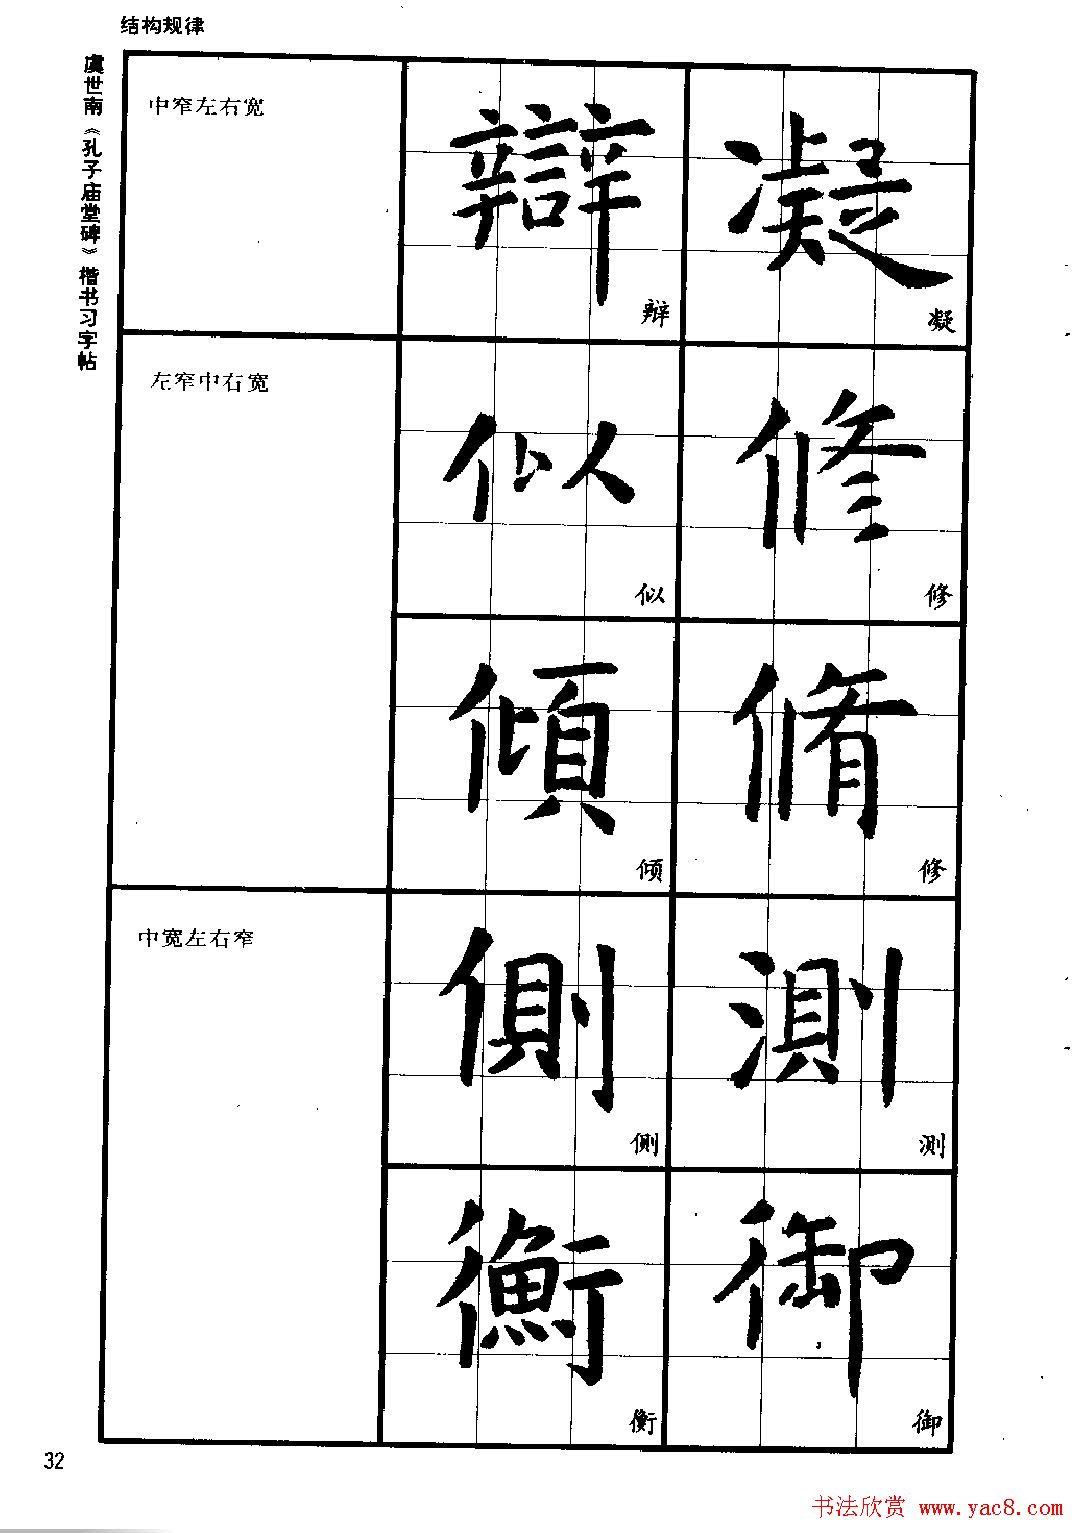 结构规律
虞世南《孔子庙堂碑》楷书习字帖
中窄左右宽
辯 凝
辩 凝
左窄中右宽
似 修
似 修
傾 脩
倾 修
中宽左右窄
側 測
侧 测
衡 御
衡 御
32
书法欣赏 www.yac8.com